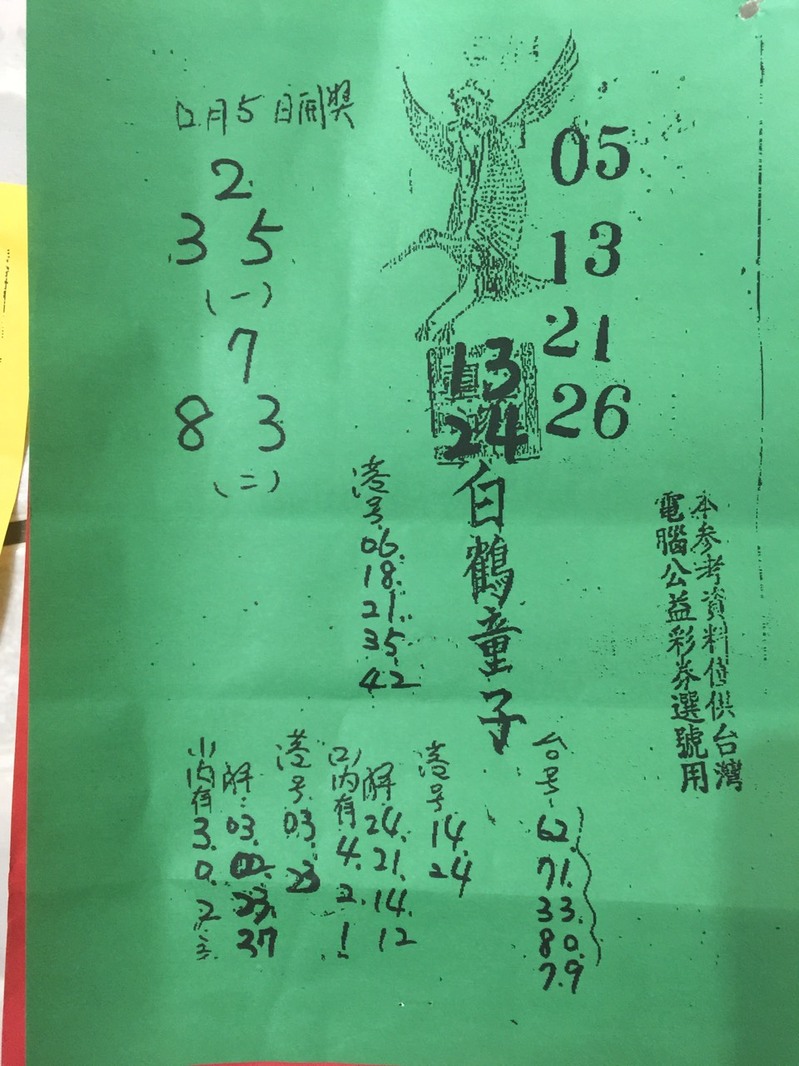 12月5日開獎
2
3 5
(一)
7
8 3
(二)
05
13
21
26
13
24
白鶴童子
本參考資料僅供台灣
電腦公益彩券選號用
港号
06.
18.
21.
35.
42
台号
62.
71.
33.
80.
79
港号
14.
24
解
24.
21.
14.
12
(2)内有
4.
2.
1
港号
03
23
解:
03.
02.
23.
37
(1)内有
3.
0.
2